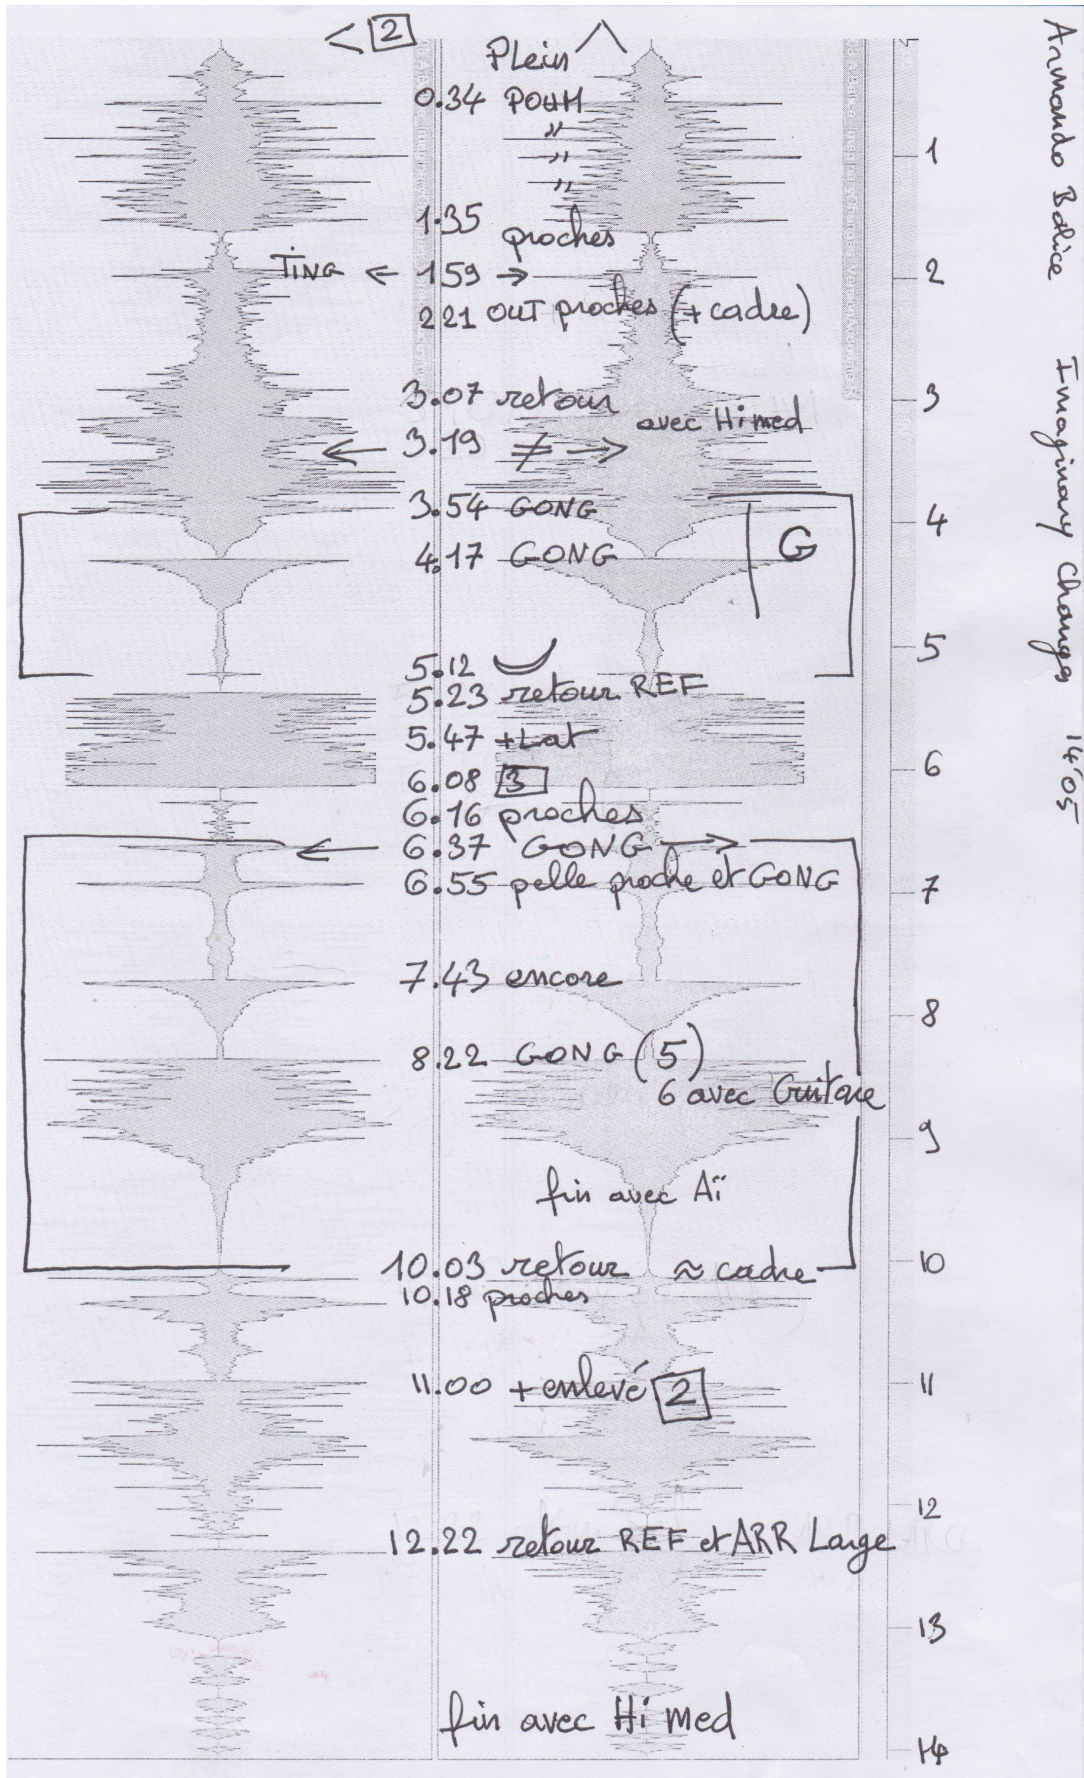 < 2
Plein
0.34 POUM
"
"
"
1.35
proches
TING ← 1 59 →
2 21 OUT proches (+ cadre)
3.07 retour
avec Hi med
← 3.19 ≠ →
3.54 GONG
4.17 GONG
G
5.12
5.23 retour REF
5.47 + Lat
6.08 3
6.16 proches
← 6.37 GONG →
6.55 pelle proche et GONG
7.43 encore
8.22 GONG (5)
6 avec Guitare
fin avec Aï
10.03 retour ≈ cadre
10.18 proches
11.00 + enlevé 2
12.22 retour REF et ARR Large
fin avec Hi med
1
2
3
4
5
6
7
8
9
10
11
12
13
14
Armando Balice Imaginary Changes 14'05